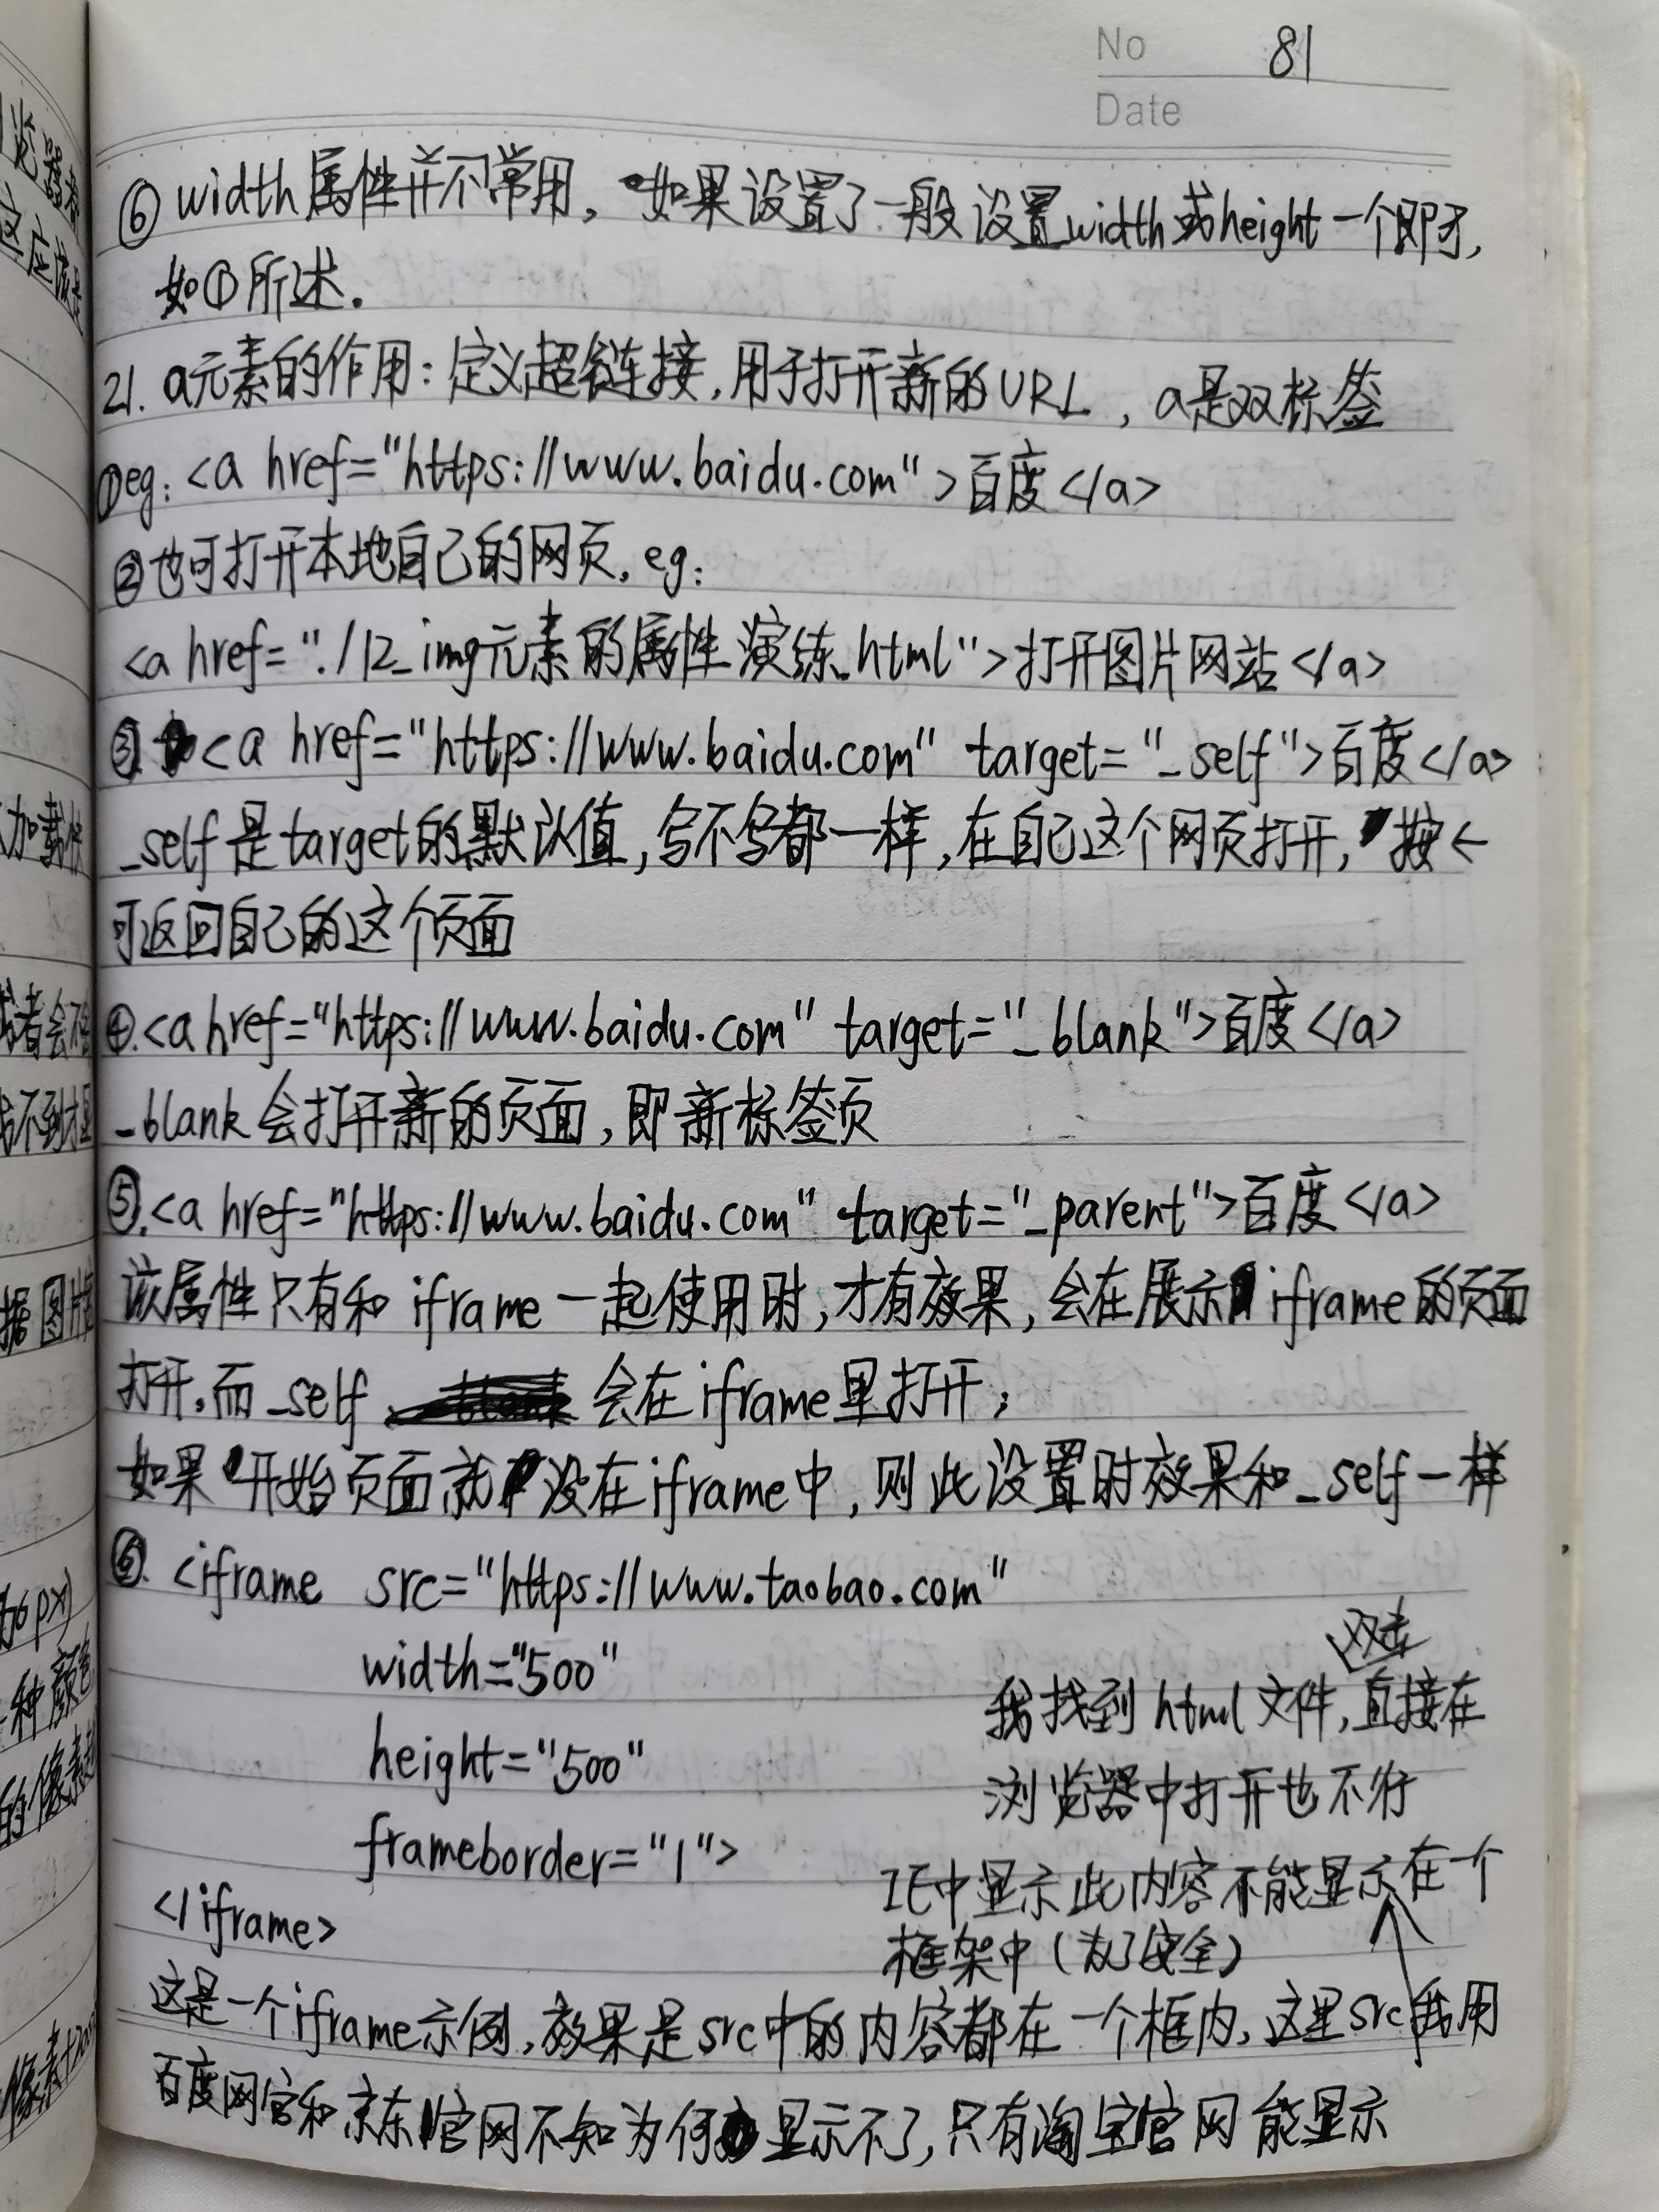 No 81
Date
⑥ width属性并不常用，如果设置了一般设置width或height一个即可，
如①所述.
21. a元素的作用：定义超链接，用于打开新的URL，a是双标签
①eg：<a href="https://www.baidu.com">百度</a>
②也可打开本地自己的网页，eg：
<a href="./12_img元素的属性演练.html">打开图片网站</a>
③.<a href="https://www.baidu.com" target="_self">百度</a>
_self是target的默认值，写不写都一样，在自己这个网页打开，按←
可返回自己的这个页面
④.<a href="https://www.baidu.com" target="_blank">百度</a>
_blank会打开新的页面，即新标签页
⑤.<a href="https://www.baidu.com" target="_parent">百度</a>
该属性只有和iframe一起使用时，才有效果，会在展示iframe的页面
打开。而_self 会在iframe里打开；
如果开始页面就没在iframe中，则此设置时效果和_self一样
⑥. <iframe src="https://www.taobao.com"
width="500"
height="500"
frameborder="1">
</iframe>
双击
我找到html文件，直接在
浏览器中打开也不行
IE中显示此内容不能显示在一个
框架中（为了安全）
这是一个iframe示例，效果是src中的内容都在一个框内，这里src我用
百度网官和京东官网不知为何显示不了，只有淘宝官网能显示
览器
这应该
加载
者会
不到
据图片
px)
一种颜色
的像素
像素